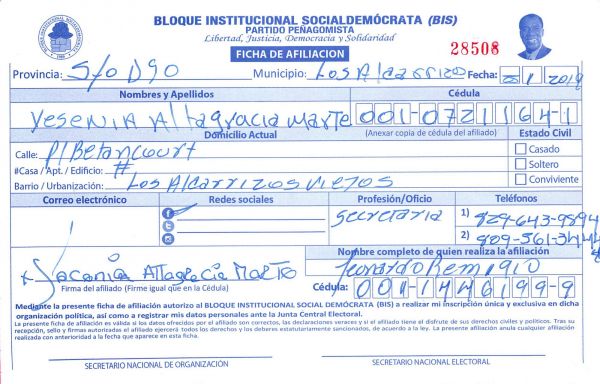 BLOQUE INSTITUCIONAL SOCIALDEMÓCRATA (BIS)
PARTIDO PEÑAGOMISTA
Libertad, Justicia, Democracia y Solidaridad
FICHA DE AFILIACION
28508
Provincia: S/o Dgo Municipio: Los Alcarrizo Fecha:
Nombres y Apellidos Cédula
Yesenia Altagracia Marte 001-0721164-1
Domicilio Actual (Anexar copia de cédula del afiliado) Estado Civil
Calle: P/Betancourt Casado
#Casa / Apt. / Edificio: # Soltero
Barrio / Urbanización: Los Alcarrizos Viejos Conviviente
Correo electrónico Redes sociales Profesión/Oficio Teléfonos
Secretaria 1) 829-643-9894
2) 809-561-3444
Nombre completo de quien realiza la afiliación
x Altagracia Marte Leonardo Remigio
Firma del afiliado (Firme igual que en la Cédula) Cédula: 001-1446199-9
Mediante la presente ficha de afiliación autorizo al BLOQUE INSTITUCIONAL SOCIALDEMÓCRATA (BIS) a realizar mi inscripción única y exclusiva en dicha
organización política, así como a registrar mis datos personales ante la Junta Central Electoral.
La presente ficha de afiliación es válida si los datos ofrecidos por el afiliado son correctos, las declaraciones veraces y si el afiliado tiene el disfrute de sus derechos civiles y políticos. Tras su
recepción, sello y firmas autorizadas el afiliado ejercerá todos los derechos y los deberes estatutariamente sancionados, de acuerdo a la ley. La presente afiliación anula cualquier afiliación
realizada con anterioridad a la fecha que aparece en esta ficha.
SECRETARIO NACIONAL DE ORGANIZACIÓN SECRETARIO NACIONAL ELECTORAL